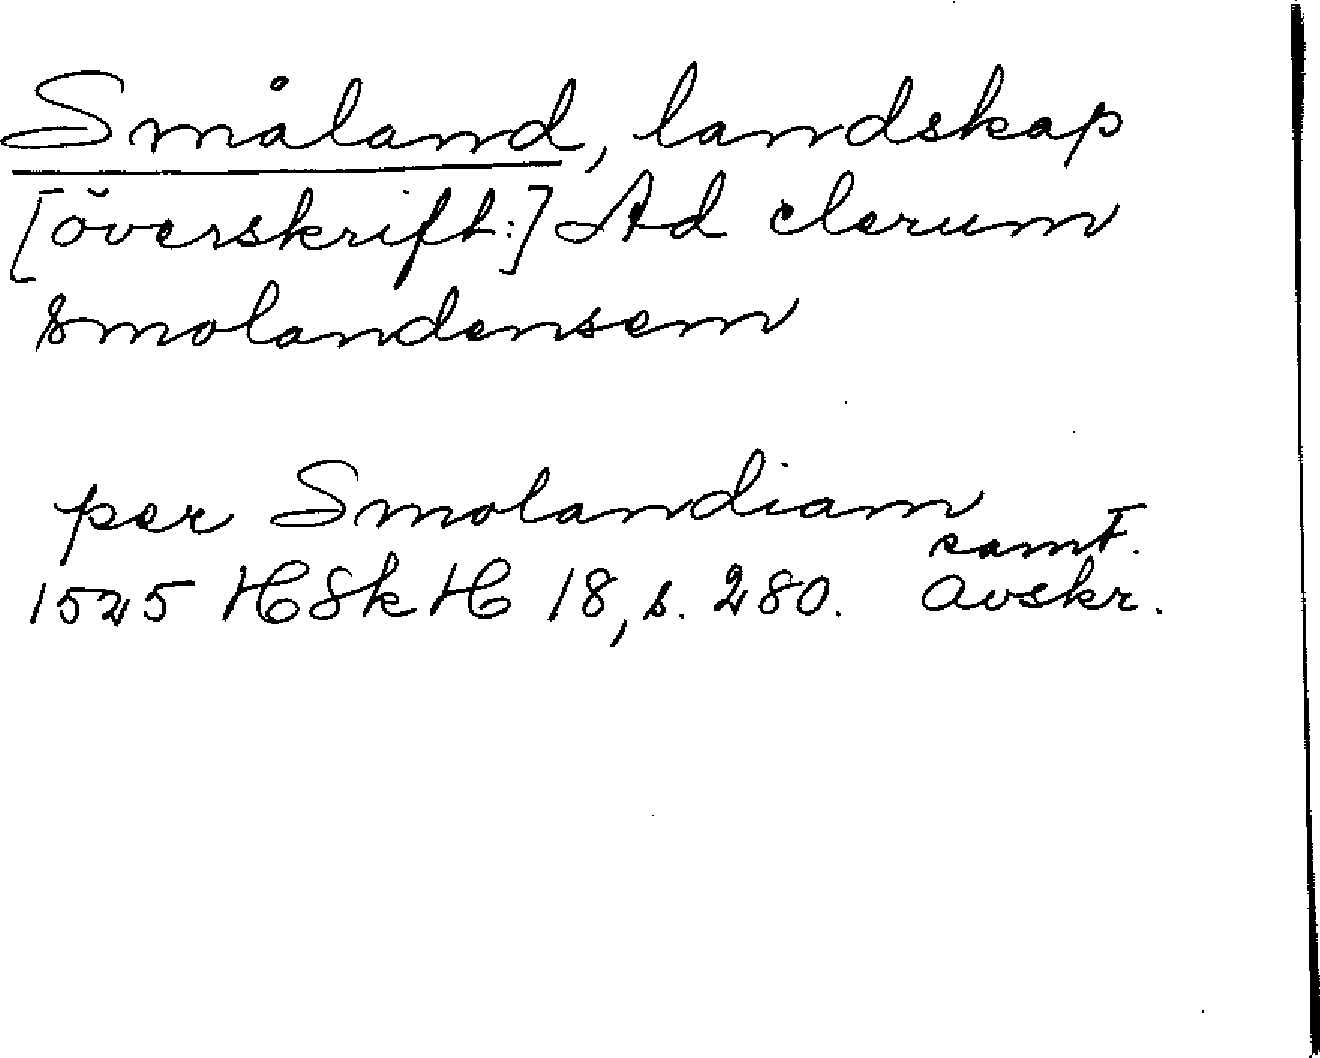 Småland, landskap
[överskrift:] Ad clerum
smolandensem
per Smolandiam
samt.
1525 HSkH 18, s. 280. Avskr.